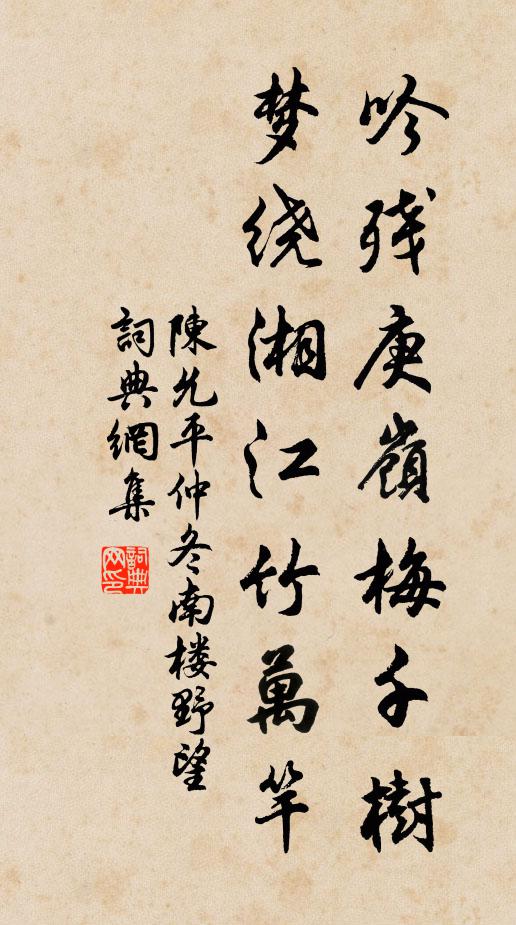 吟残庾嶺梅千樹
梦绕湘江竹萬竿
陳允平仲冬南楼野望
詞典網集
詞典网印